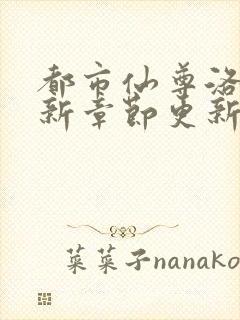 都市仙尊洛
新章节更新
菜菜子nanako